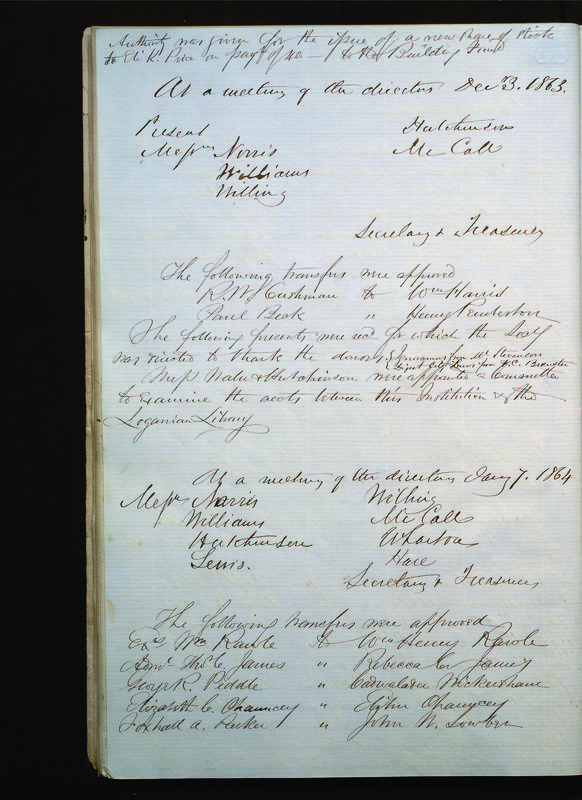 Authority was given for the issue of a new share of stock
to Eli K. Price on payt of 40 — to the Building Fund
At a meeting of the directors Dec 3. 1863.
Present Hutchinson
Messrs Norris Mc Call
Williams
Willing
Secretary & Treasurer
The following transfers were approved
R. W. Cushman to Wm Harris
Paul Beck " Henry Pemberton
The following presents were recd for which the Secty
was directed to thank the donors from Mr Stevenson
City Laws for J. C.
Messrs & Hutchinson were appointed a Committee
to examine the accts between this Institution & the
Loganian Library
At a meeting of the directors Jany 7. 1864
Messrs Norris Willing
Williams Mc Call
Hutchinson Wharton
Lewis. Hare
Secretary & Treasurer
The following transfers were approved
Exs Wm Rawle to Wm Henry Rawle
Admr Thos C. James " Rebecca C. James
George R. Peddle " Cadwalader Wickersham
Elizabeth C. Chauncey " Elihu Chauncey
Foxhall A. Parker " John W.